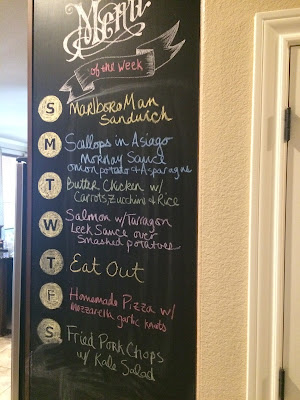 Menu
of the Week
S
Marlboro Man
Sandwich
M
Scallops in Asiago
Mornay Sauce
onion potato + Asparagus
T
Butter Chicken w/
Carrots, Zucchini & Rice
W
Salmon w/Tarragon
Leek Sauce over
Smashed potatoes
T
Eat Out
F
Homemade Pizza w/
Mozzarella garlic knots
S
Fried Pork Chops
w/ Kale Salad